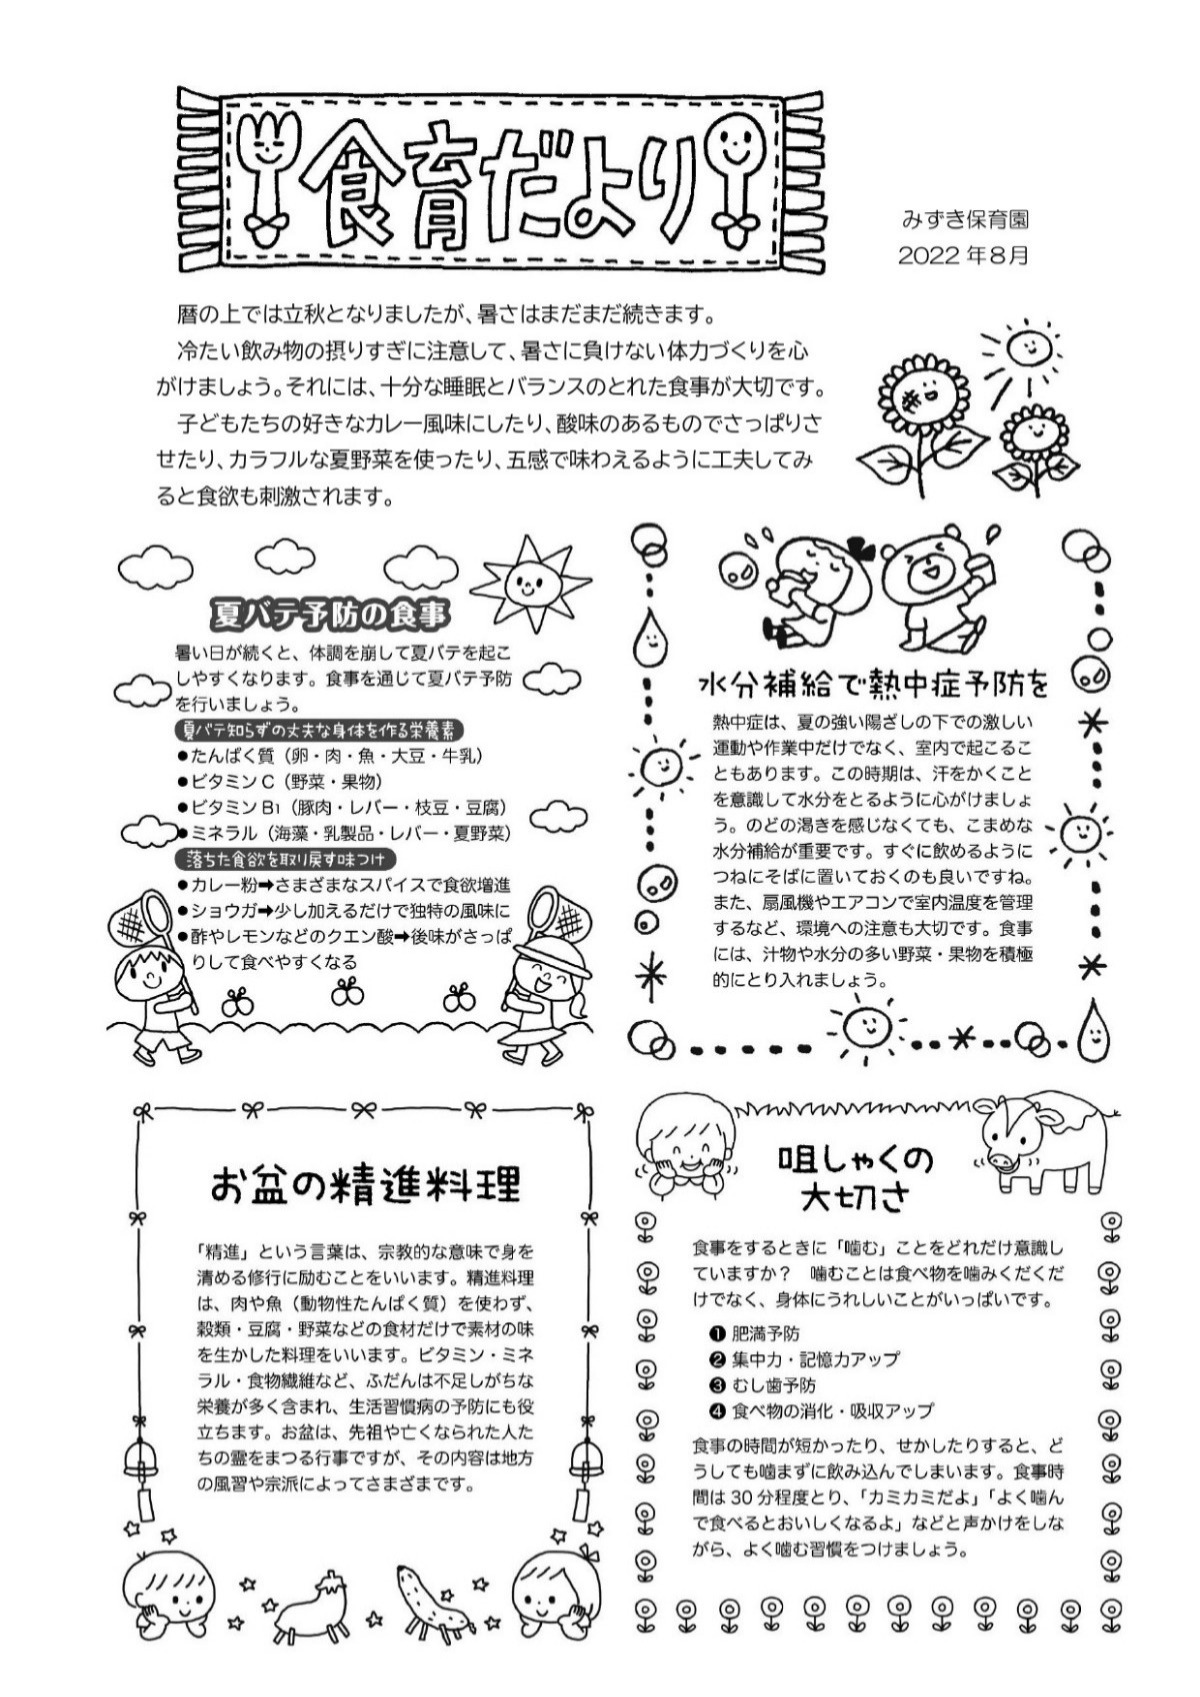 食育だより
みずき保育園
2022年8月
暦の上では立秋となりましたが、暑さはまだまだ続きます。
冷たい飲み物の摂りすぎに注意して、暑さに負けない体力づくりを心
がけましょう。それには、十分な睡眠とバランスのとれた食事が大切です。
子どもたちの好きなカレー風味にしたり、酸味のあるものでさっぱりさ
せたり、カラフルな夏野菜を使ったり、五感で味わえるように工夫してみ
ると食欲も刺激されます。
夏バテ予防の食事
暑い日が続くと、体調を崩して夏バテを起こ
しやすくなります。食事を通じて夏バテ予防
を行いましょう。
夏バテ知らずの丈夫な身体を作る栄養素
●たんぱく質（卵・肉・魚・大豆・牛乳）
●ビタミンC（野菜・果物）
●ビタミンB1（豚肉・レバー・枝豆・豆腐）
●ミネラル（海藻・乳製品・レバー・夏野菜）
落ちた食欲を取り戻す味つけ
●カレー粉➡さまざまなスパイスで食欲増進
●ショウガ➡少し加えるだけで独特の風味に
●酢やレモンなどのクエン酸➡後味がさっぱ
りして食べやすくなる
水分補給で熱中症予防を
熱中症は、夏の強い陽ざしの下での激しい
運動や作業中だけでなく、室内で起こるこ
ともあります。この時期は、汗をかくこと
を意識して水分をとるように心がけましょ
う。のどの渇きを感じなくても、こまめな
水分補給が重要です。すぐに飲めるように
つねにそばに置いておくのも良いですね。
また、扇風機やエアコンで室内温度を管理
するなど、環境への注意も大切です。食事
には、汁物や水分の多い野菜・果物を積極
的にとり入れましょう。
お盆の精進料理
「精進」という言葉は、宗教的な意味で身を
清める修行に励むことをいいます。精進料理
は、肉や魚（動物性たんぱく質）を使わず、
穀類・豆腐・野菜などの食材だけで素材の味
を生かした料理をいいます。ビタミン・ミネ
ラル・食物繊維など、ふだんは不足しがちな
栄養が多く含まれ、生活習慣病の予防にも役
立ちます。お盆は、先祖や亡くなられた人た
ちの霊をまつる行事ですが、その内容は地方
の風習や宗派によってさまざまです。
咀しゃくの
大切さ
食事をするときに「噛む」ことをどれだけ意識し
ていますか？　噛むことは食べ物を噛みくだくだ
けでなく、身体にうれしいことがいっぱいです。
❶ 肥満予防
❷ 集中力・記憶力アップ
❸ むし歯予防
❹ 食べ物の消化・吸収アップ
食事の時間が短かったり、せかしたりすると、ど
うしても噛まずに飲み込んでしまいます。食事時
間は30分程度とり、「カミカミだよ」「よく噛ん
で食べるとおいしくなるよ」などと声かけをしな
がら、よく噛む習慣をつけましょう。